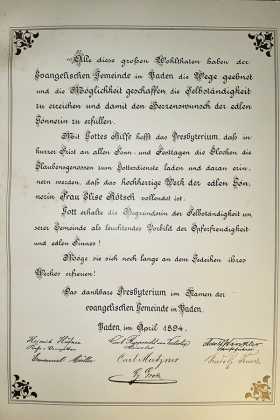 Alle diese großen Wohlthaten haben der
Evangelischen Gemeinde in Baden die Wege geebnet
und die Möglichkeit geschaffen die Selbständigkeit
zu erreichen und damit den Herzenswunsch der edlen
Gönnerin zu erfüllen.
Mit Gottes Hilfe hofft das Presbyterium, daß in
kurzer Frist an allen Sonn- und Festtagen die Glocken die
Glaubensgenossen zum Gottesdienste laden und daran erin-
nern werden, daß das hochherzige Werk der edlen Gön-
nerin Frau Elise Kötsch vollendet ist.
Gott erhalte die Begründerin der Selbständigkeit un-
serer Gemeinde als leuchtendes Vorbild der Opferfreudigkeit
und edlen Sinnes!
Möge sie sich noch lange an dem Gedeihen ihres
Werkes erfreuen!
Das dankbare Presbyterium im Namen der
evangelischen Gemeinde in Baden.
Baden, im April 1894.
Heinrich
Carl
Carl Metzner